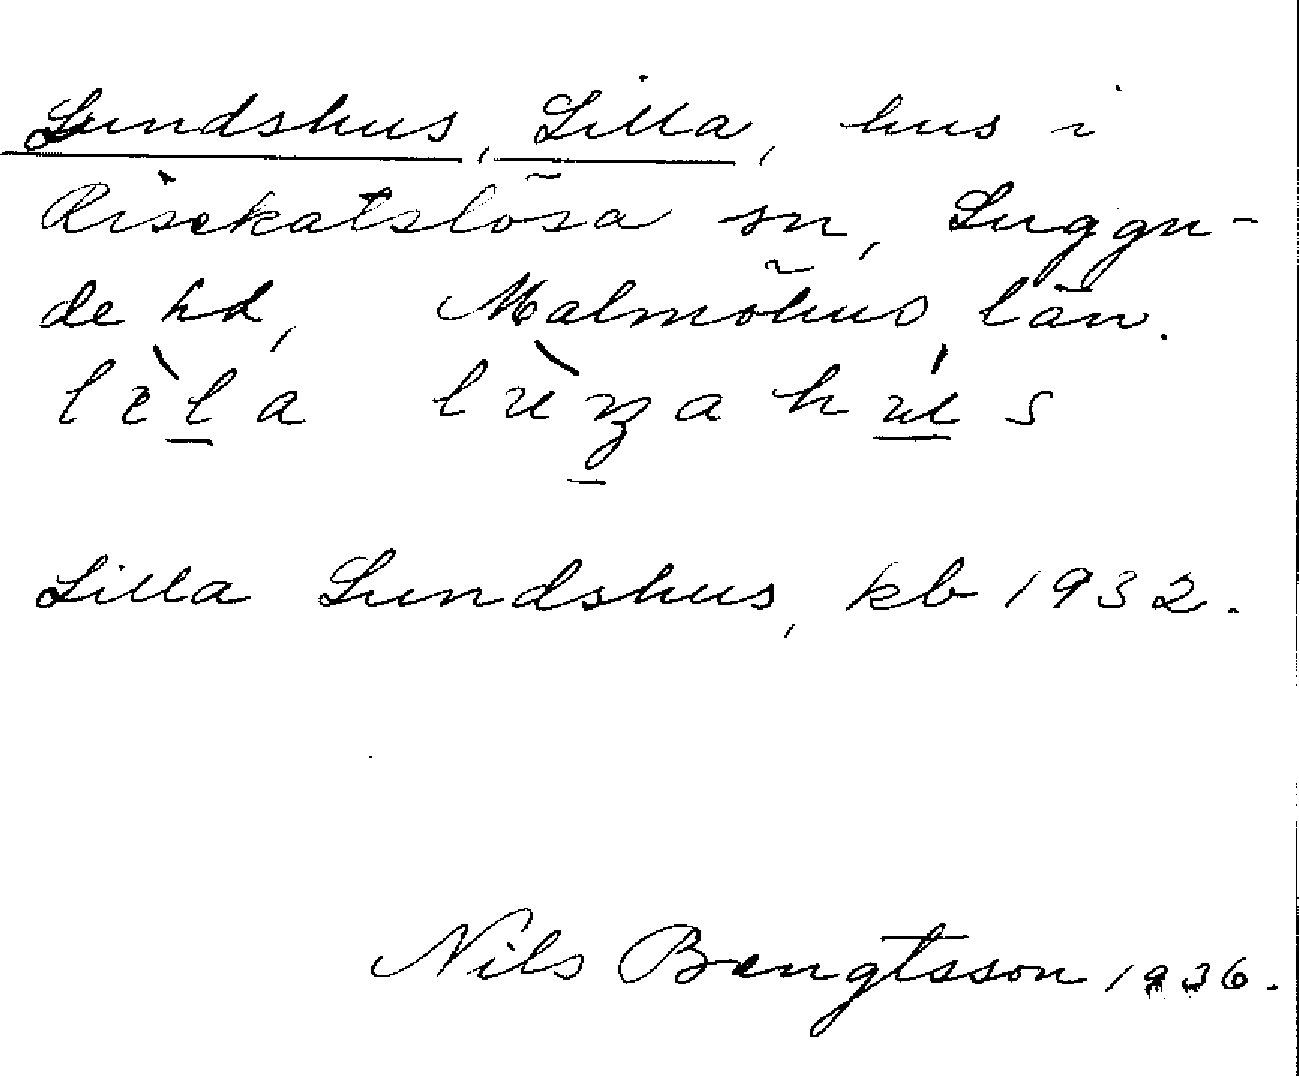 Lundshus, Lilla, hus i
Risekatslösa sn, Luggu-
de hd, Malmöhus län.
lèl̲a lùn̲zahú̲s
Lilla Lundshus, kb 1932.
Nils Bengtsson 1936.